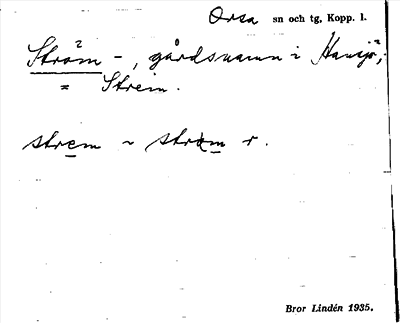 Orsa sn och tg, Kopp. l.
Ström -, gårdsnamn i Hansjö;
= Strein.
strem ~ r.
Bror Lindén 1935.